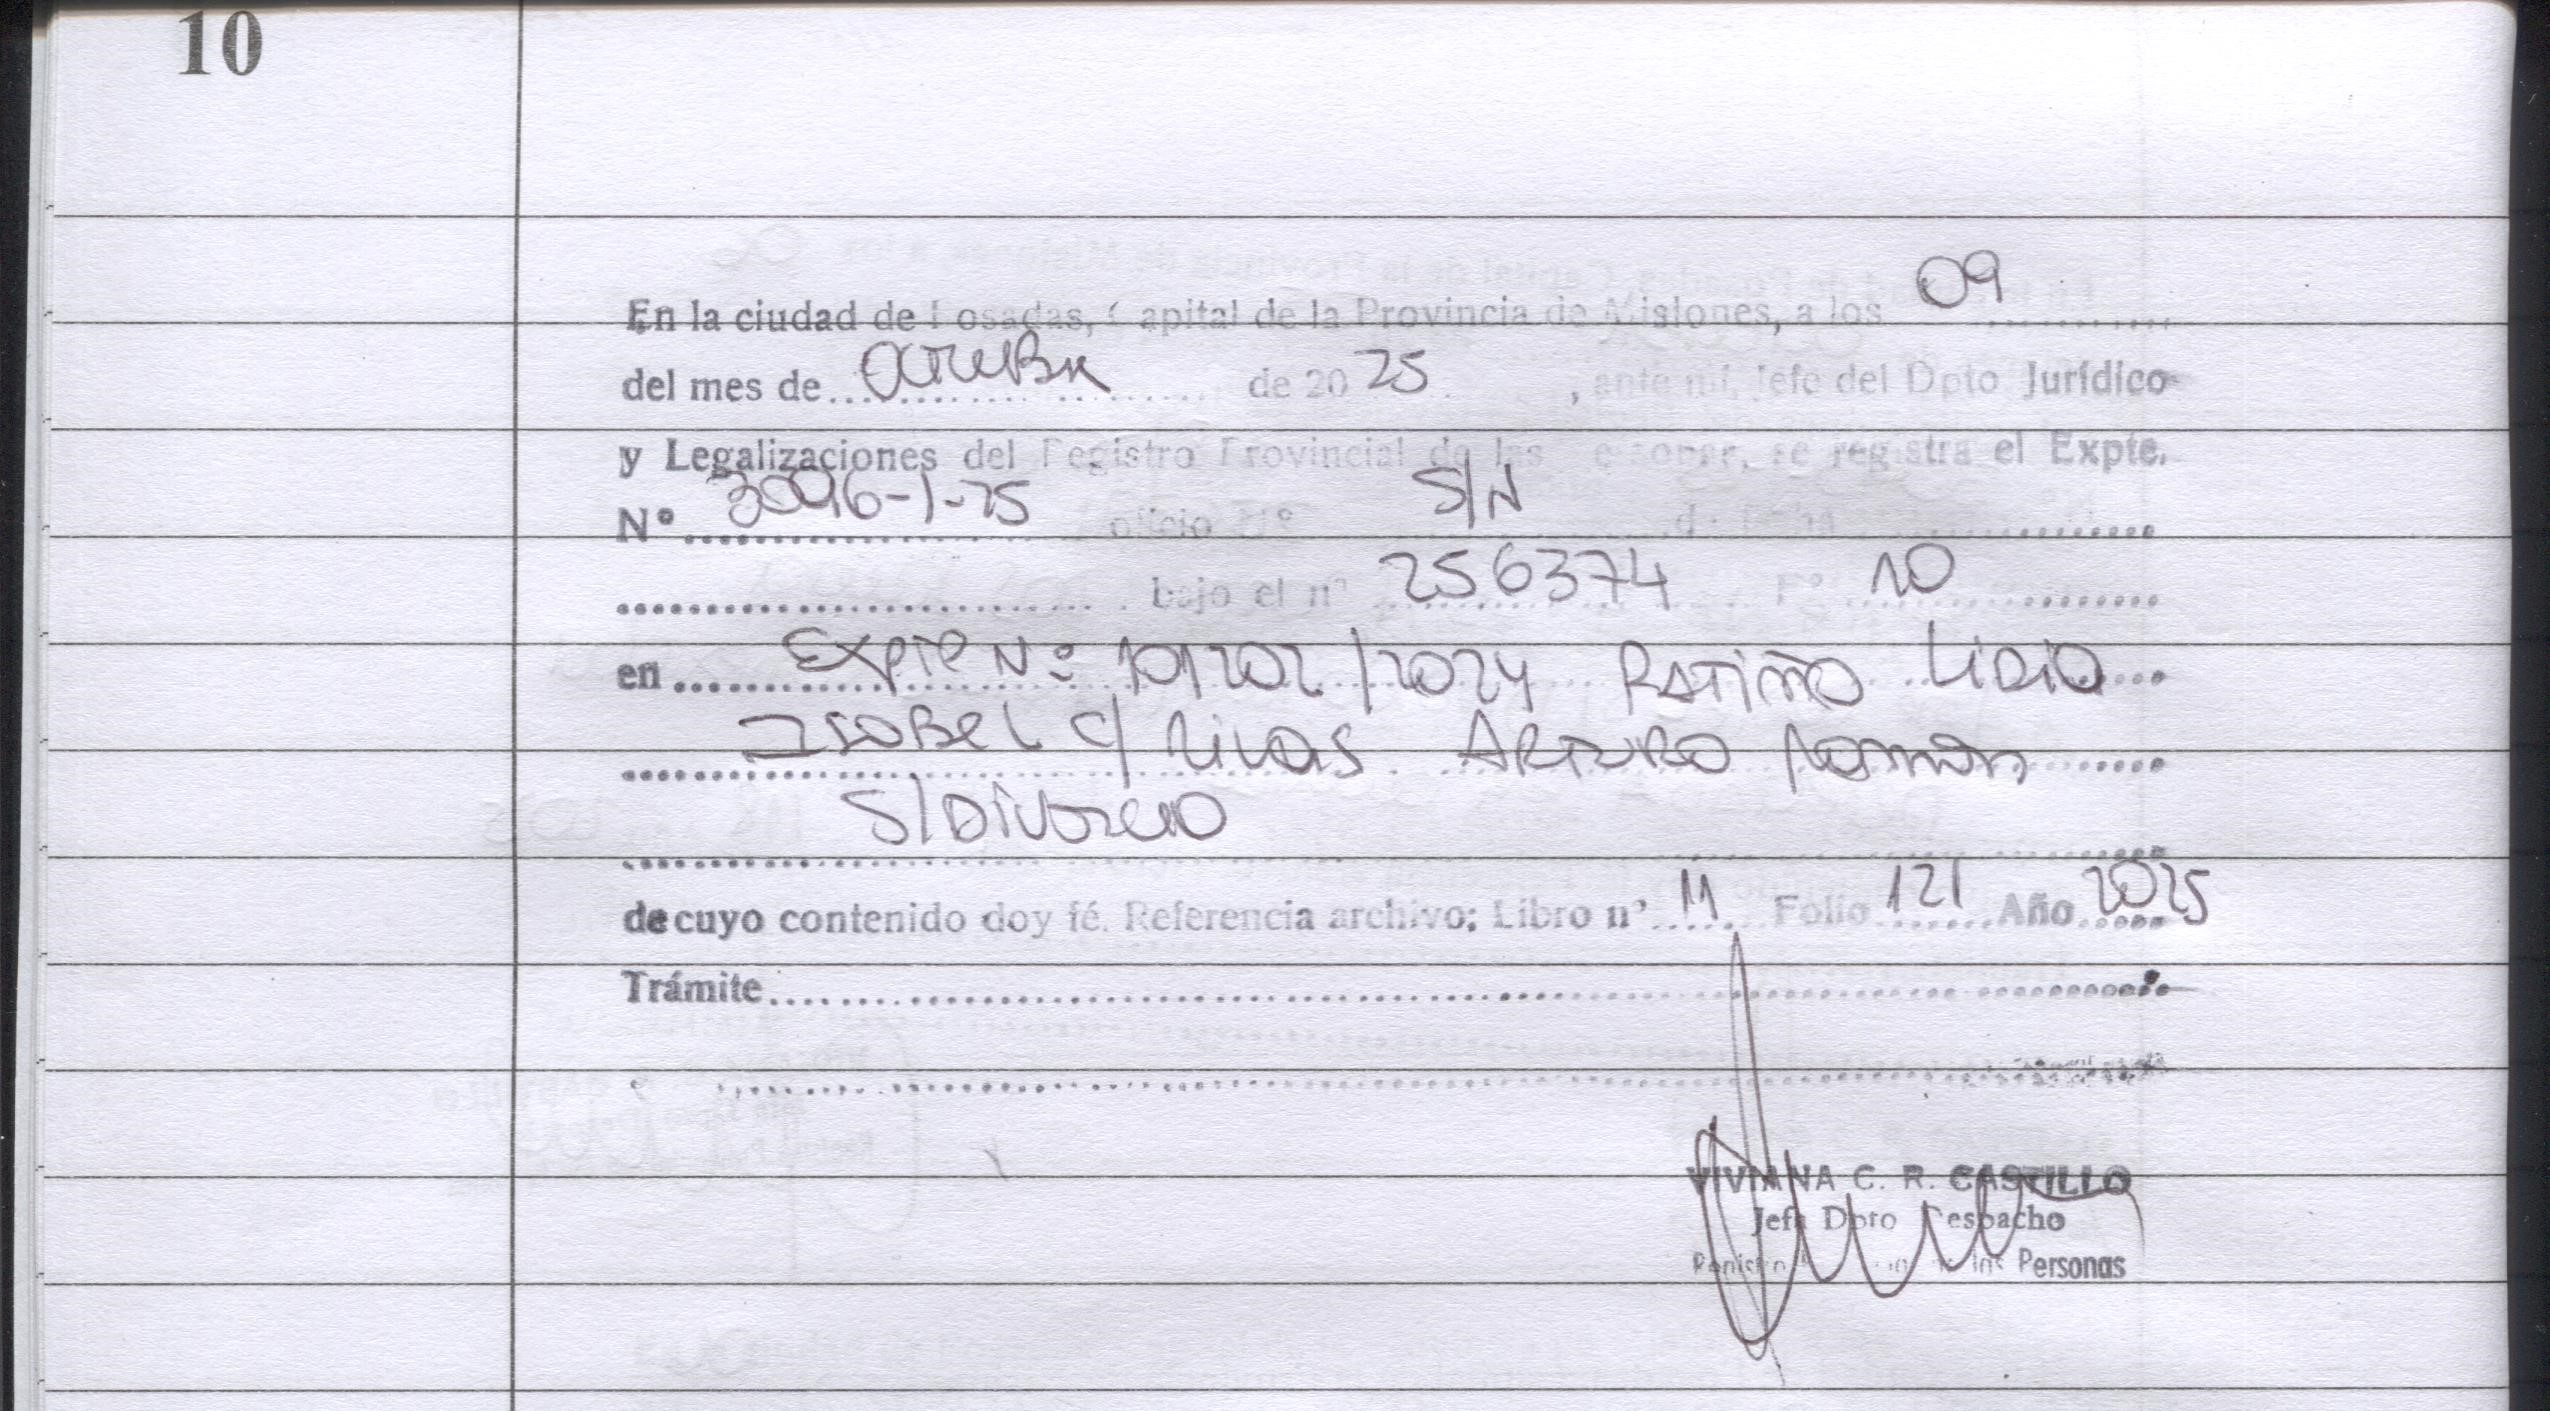 10
En la ciudad de Posadas, Capital de la Provincia de Misiones, a los 09
del mes de octubre de 20 25, ante mi, Jefe del Dpto Jurídico
y Legalizaciones del Registro Provincial de las Personas, se registra el Expte.
Nº 3096-1-25 oficio Nº S/N de fecha
bajo el nº 256374 Fº 10
en Expte Nº 101202/2024 Patiño Lidia
Isabel c/ Rivas Arturo Ramón
S/Divorcio
de cuyo contenido doy fé. Referencia archivo: Libro nº 11 Folio 121 Año 2025
Trámite
VIVIANA C. R. CASTILLO
Jefa Dpto Despacho
Registro de las Personas